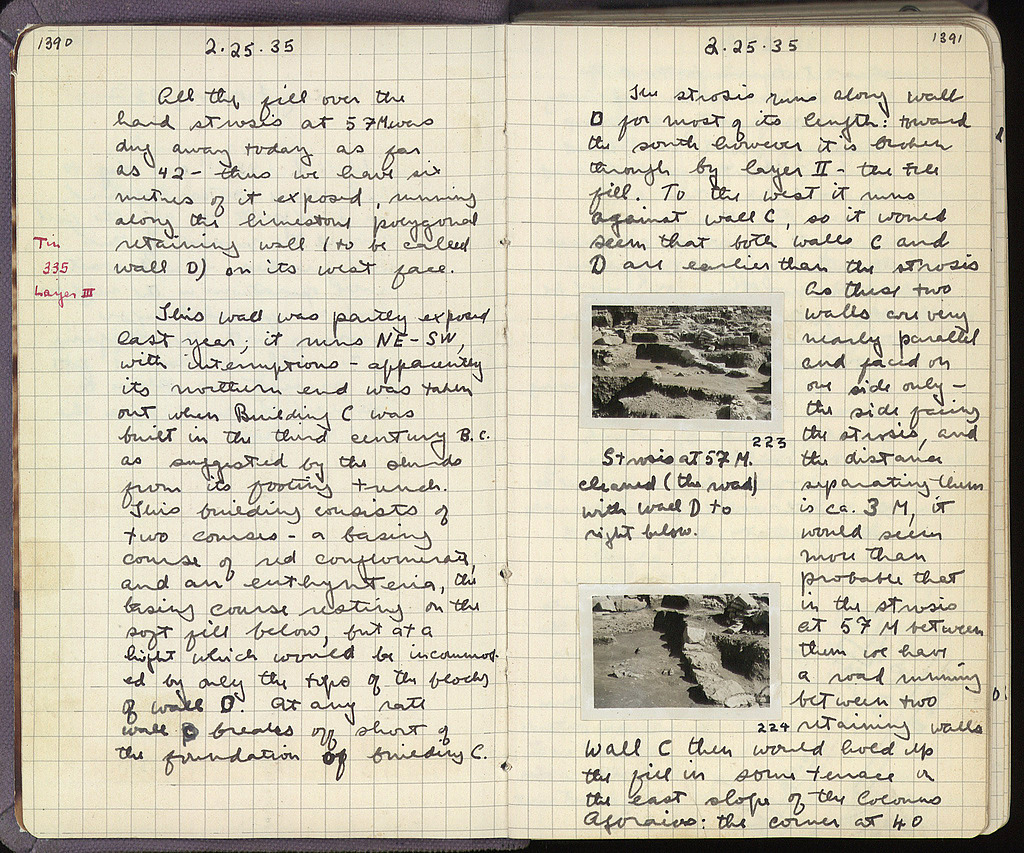 1390
2.25.35
All the fill over the
hard strosis at 57M was
dug away today as far
as 42 - thus we have six
metres of it exposed, running
along the limestone polygonal
retaining wall (to be called
wall D) on its west face.
Tin
335
Layer III
This wall was partly exposed
last year; it runs NE-SW,
with interruptions - apparently
its northern end was taken
out when Building C was
built in the third century B.C.
as suggested by the sherds
from its footing trench.
This building consists of
two courses - a basing
course of red conglomerate,
and an euthynteria, the
basing course resting on the
soft fill below, but at a
hight which would be incommod-
ed by only the tops of the blocks
of wall D. At any rate
wall D breaks off short of
the foundation of building C.
2.25.35
1391
The strosis runs along wall
D for most of its length: toward
the south however it is broken
through by layer II - the
fill. To the west it runs
against wall C, so it would
seem that both walls C and
D are earlier than the strosis
As these two
walls are very
nearly parallel
and faced on
one side only -
the side facing
the strosis, and
the distance
separating them
is ca. 3 M, it
would seem
more than
probable that
in the strosis
at 57 M between
them we have
a road running
between two
retaining walls
223
Strosis at 57 M.
cleaned (the road)
with wall D to
right below.
224
Wall C then would hold up
the fill in some terrace on
the east slope of the Colonos
Agoraios: the corner at 40